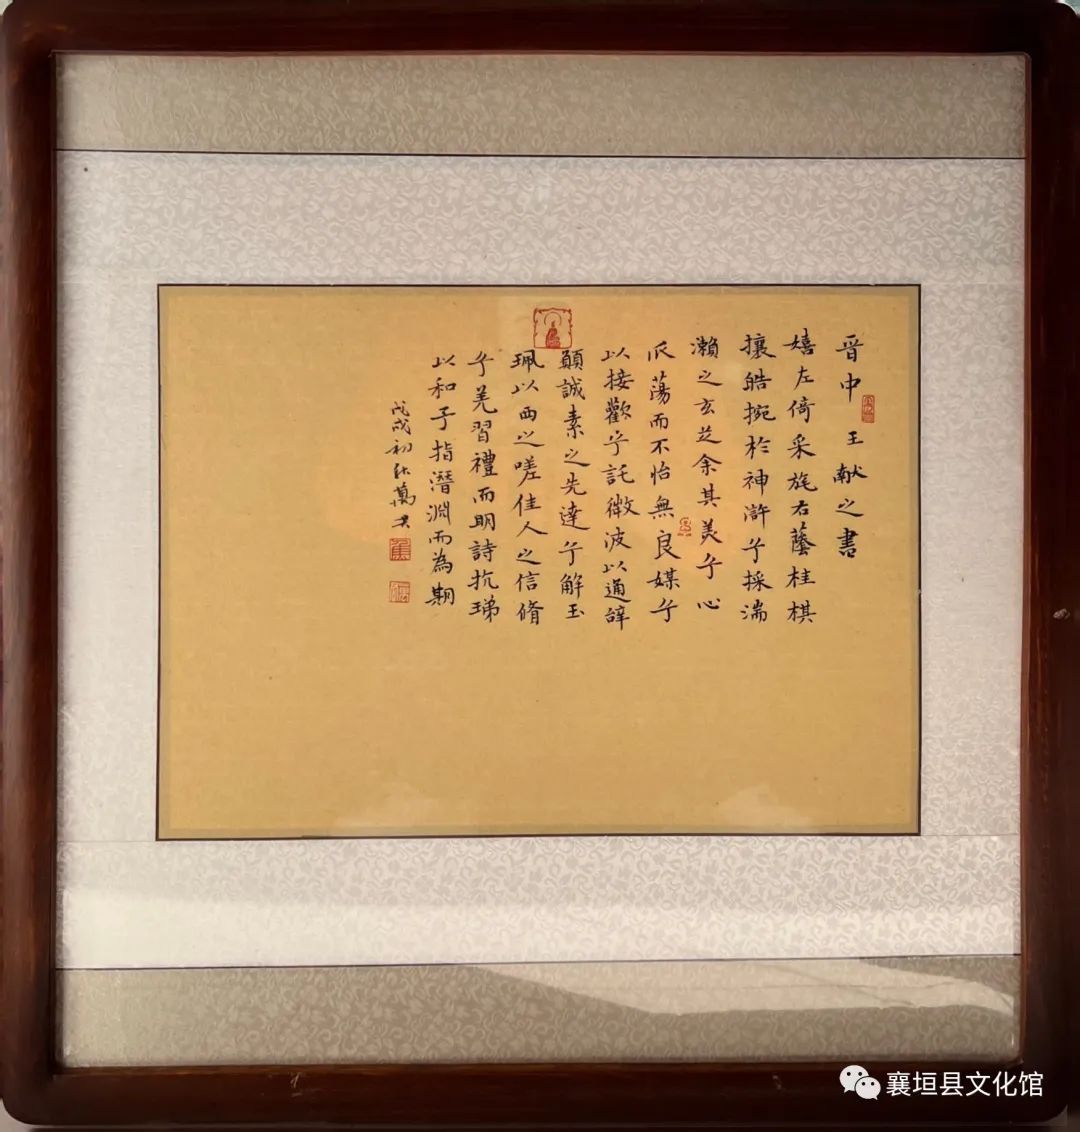 晋中王献之書
嬉左倚采旄右蔭桂棋
攘皓捥於神滸兮採湍
瀨之玄芝余其美兮心
爪蕩而不怡無良媒兮
以接歡兮託微波以通辞
願誠素之先達兮解玉
珮以而之嗟佳人之信脩
兮羌習禮而明詩抗琋
以和予指潛淵而為期
戊戌初秋萬
襄垣县文化馆